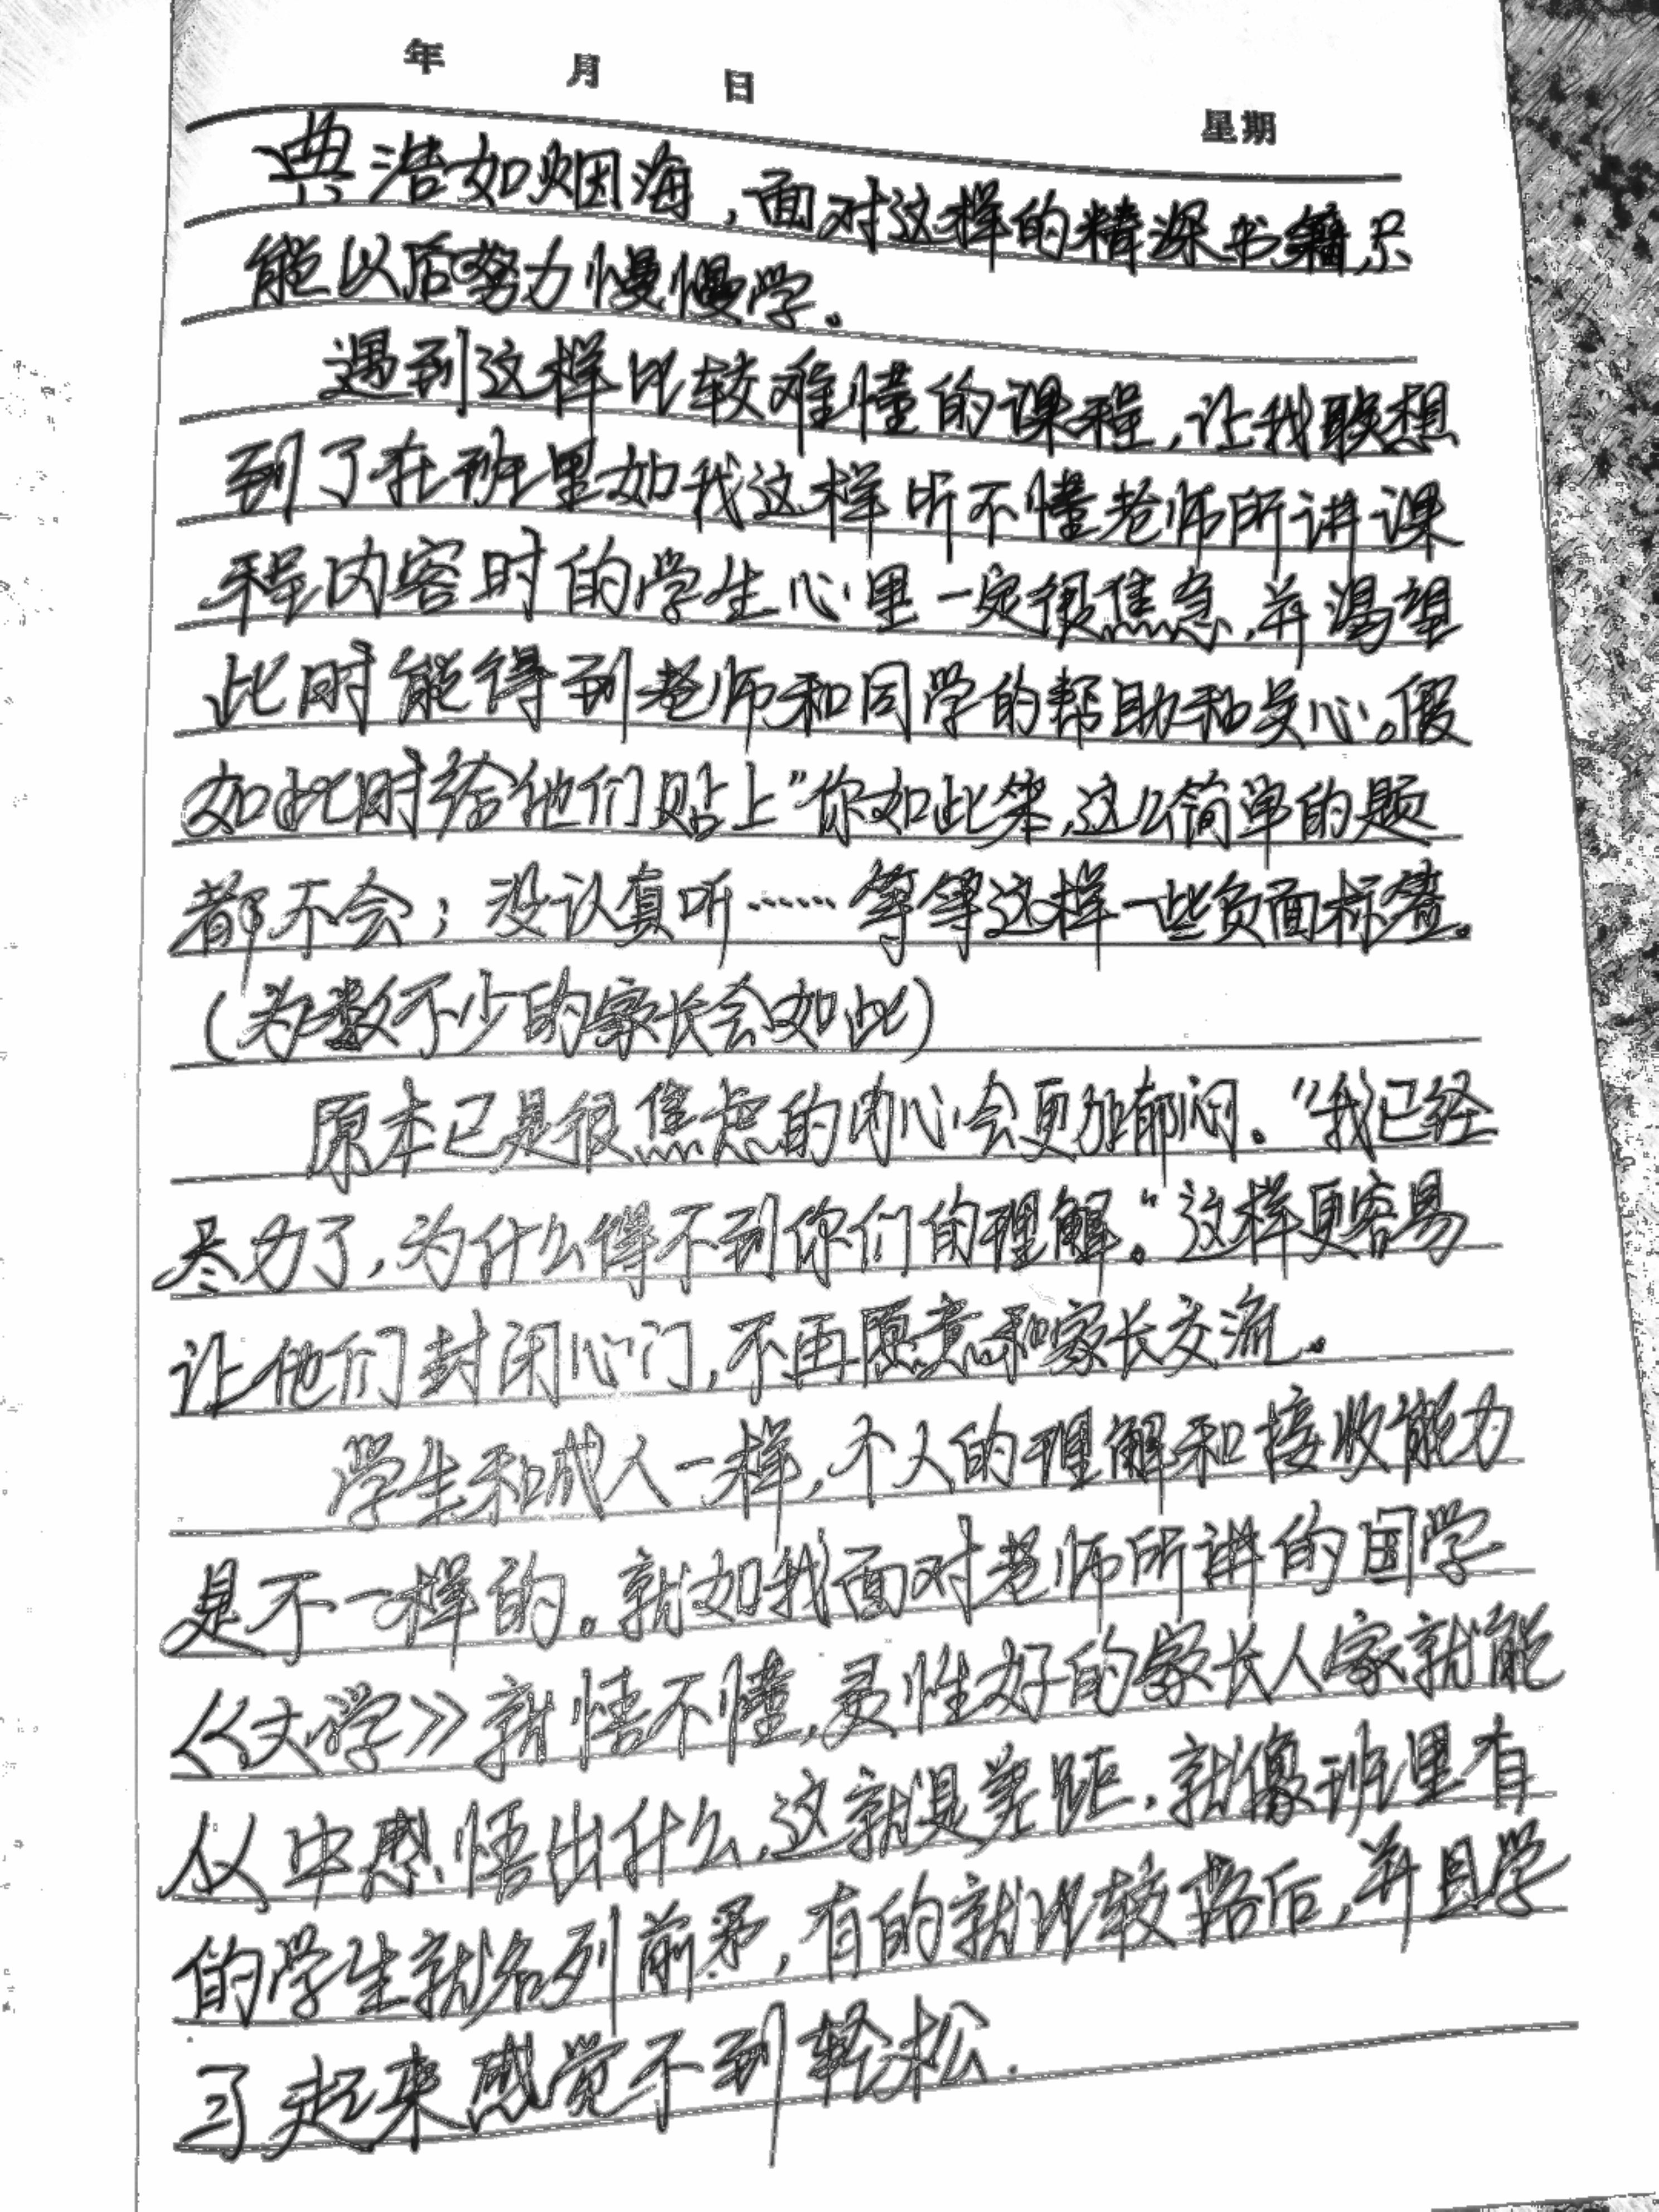 年 月 日 星期
典浩如烟海，面对这样的精深书籍只
能以后努力慢慢学。
遇到这样比较难懂的课程，让我联想
到了在班里如我这样听不懂老师所讲课
程内容时的学生心里一定很焦急，并渴望
此时能得到老师和同学的帮助和关心。假
如此时给他们贴上"你如此笨，这么简单的题
都不会；没认真听……等等这样一些负面标签。
(为数不少的家长会如此)
原本已是很焦虑的内心会更加郁闷。"我已经
尽力了，为什么得不到你们的理解。"这样更容易
让他们封闭心门，不再愿意和家长交流。
学生和成人一样，个人的理解和接收能力
是不一样的。就如我面对老师所讲的国学
《大学》就悟不懂，灵性好的家长人家就能
从中感悟出什么，这就是差距．就像班里有
的学生就名列前矛，有的就比较落后，并且学
习起来感觉不到轻松．